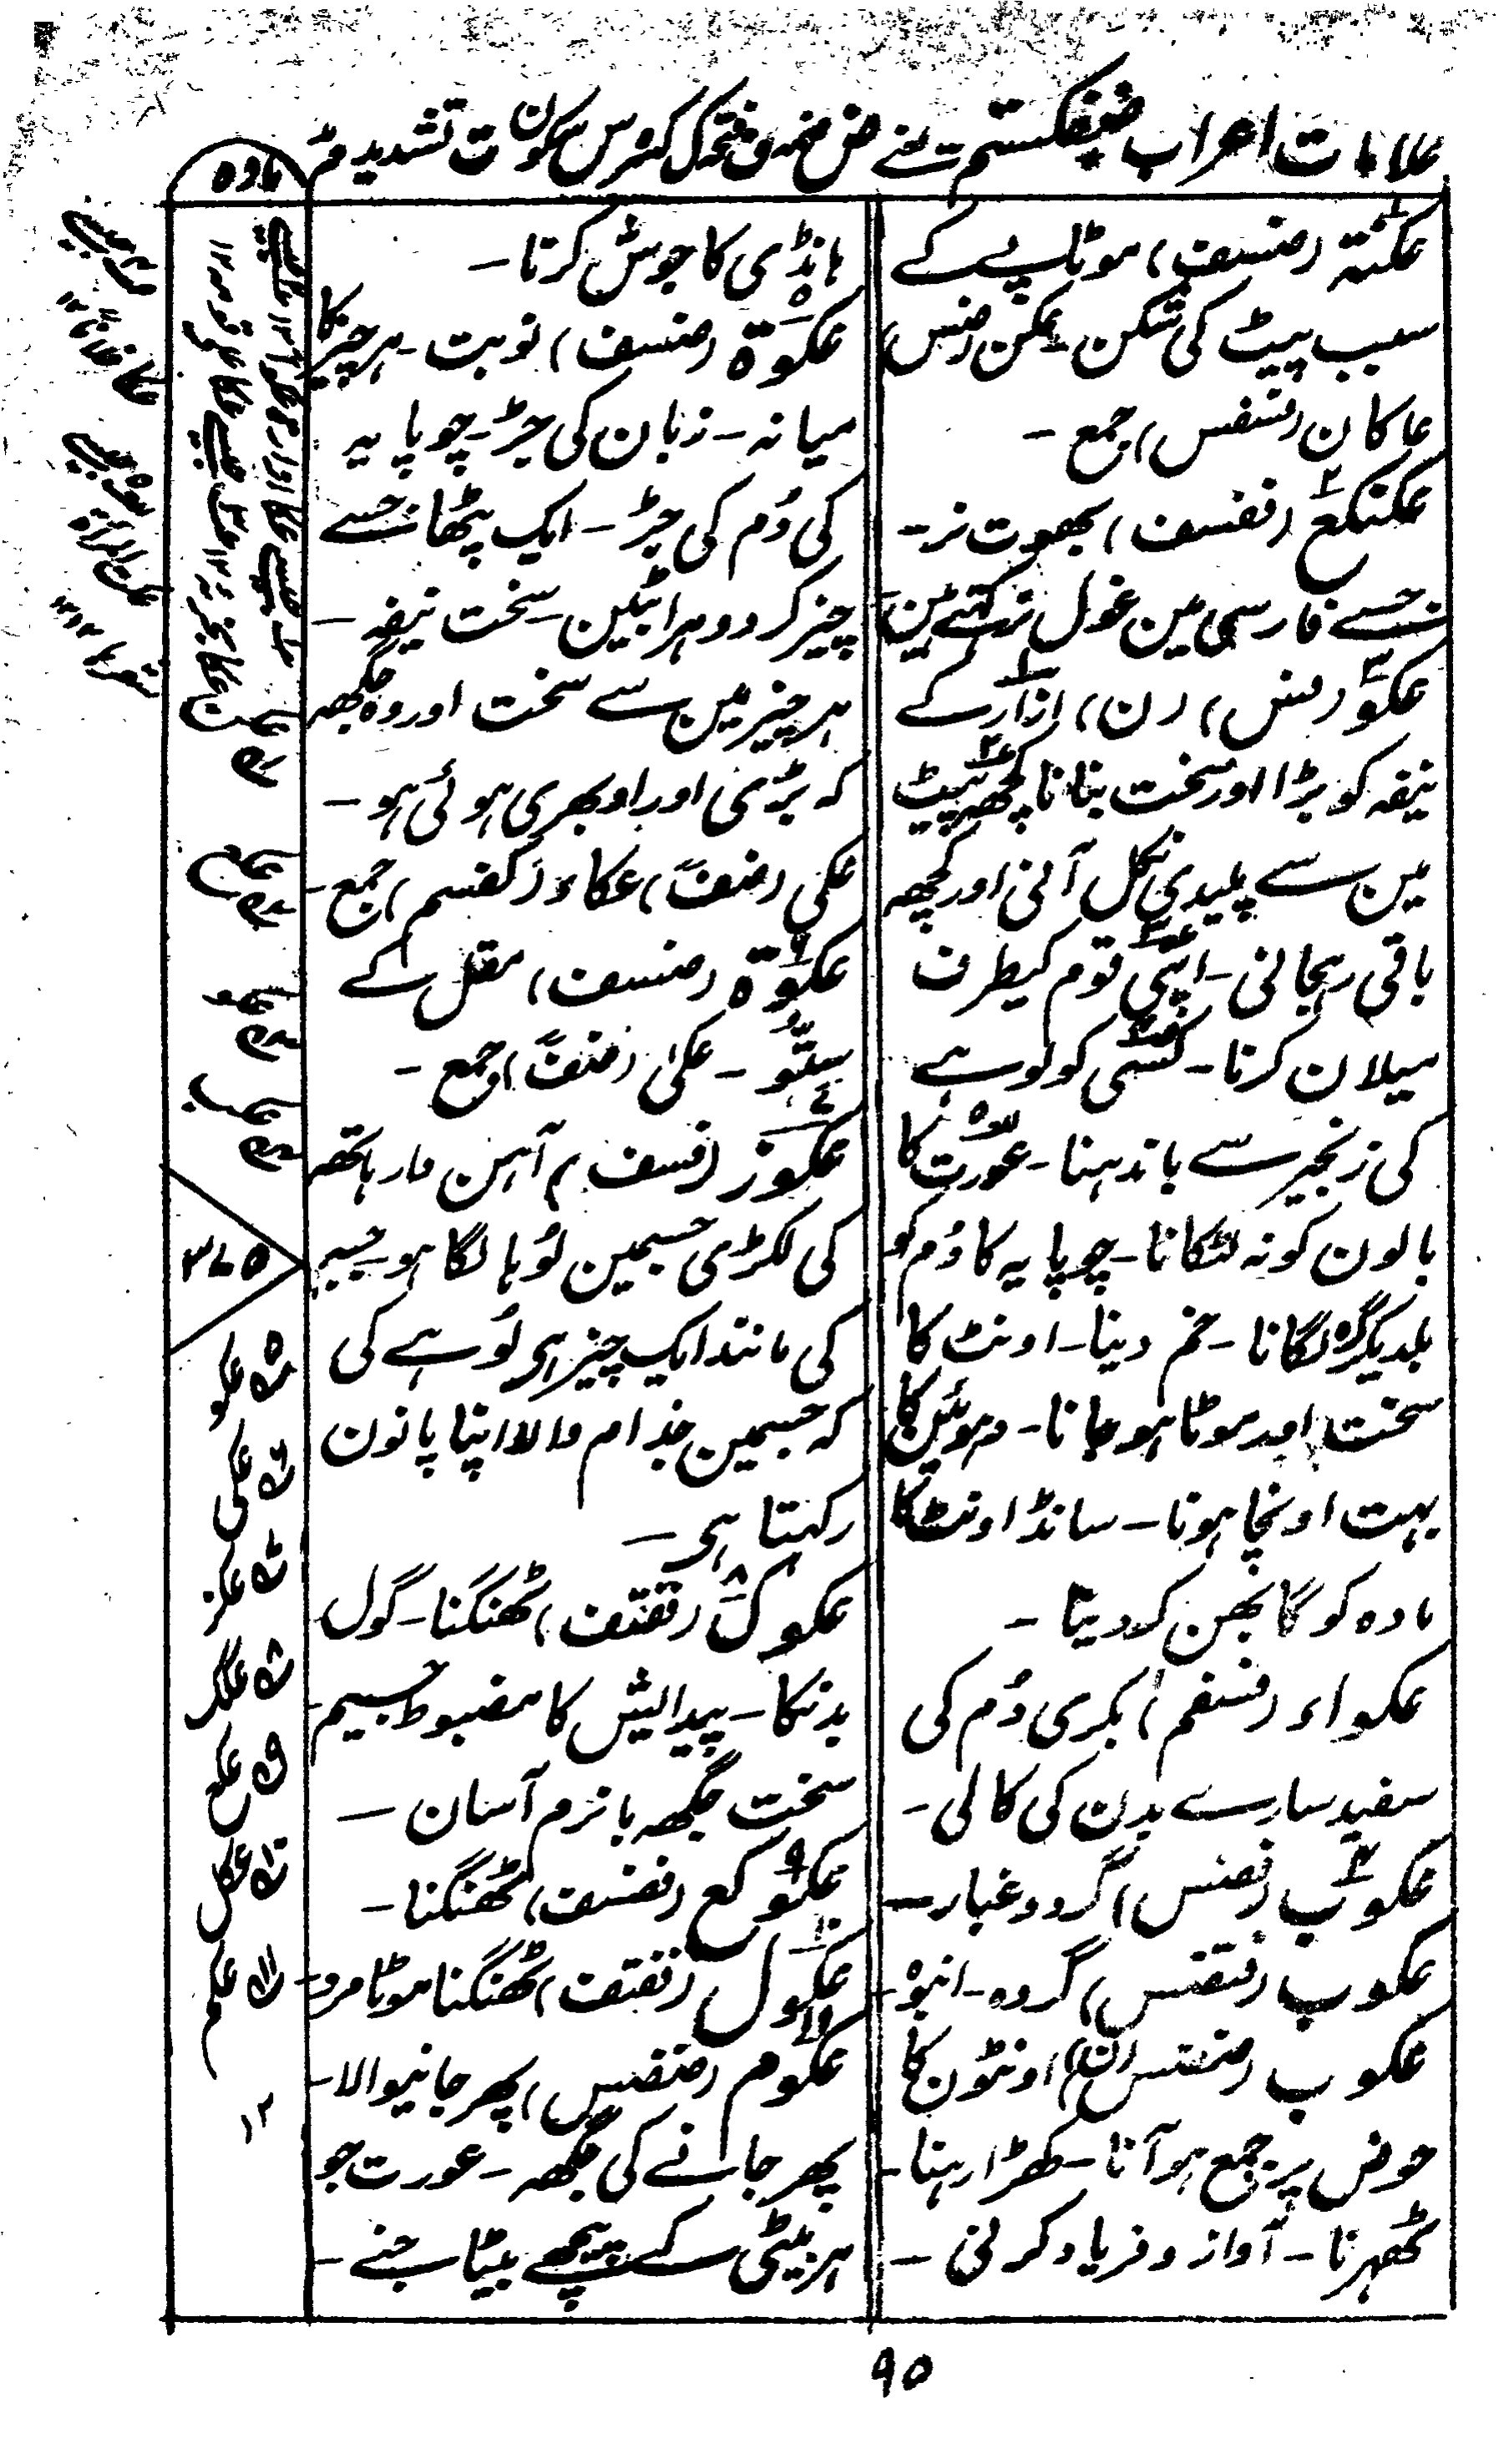 علامات اعراب ضفکستم یعنے ض ضمہ ف فتحہ ک کسرہ س سکون ت تشدید م مد
مادہ
عکنۃ (ضسف) موٹاپے کے
سبب پیٹ کی شکن - عکن (ضس)
عاکان (فتفس) جمع -
عکنکع (فضسف) بھوت نر -
جسے فارسی مین غول نر کہتے ہین
عکو (فس) (ن) ازار کے
نیفہ کو بڑا اور سخت بنانا کچھ پیٹ
مین سے پلیدی نکل آنی اور کچھ
باقی رہجانی - اپنی قوم کیطرف
میلان کرنا - کسی کو لوہے
کی زنجیر سے باندہنا - عورت کا
بالون کو نہ لٹکانا - چوپایہ کا دُم کو
بلدیکر گرہ لگانا - خم دینا - اونٹ کا
سخت اور موٹا ہو جانا - دہوئین کا
بہت اونچا ہونا - سانڈ اونٹ کا
مادہ کو گابھن کر دینا -
عکواء (فسفم) بکری دُم کی
سفید سارے بدن کی کالی -
عکوب (فضس) گرد و غبار -
عکوب (فتفس) گروہ - انبوہ -
عکوب (ضتس) (ن) اونٹون کا
حوض پر جمع ہو آنا - کھڑا رہنا -
ٹھہرنا - آواز و فریاد کرنی -
ہانڈی کا جوش کرنا -
عکوۃ (ضسف) نوبت - ہر چیز کا
میانہ - زبان کی جڑ - چوپایہ
کی دُم کی جڑ - ایک پٹھا جسے
چیر کر دوہرا بٹین - سخت نیفہ -
ہر چیز مین سے سخت اور وہ جگہ
کہ بڑی اور اوبھری ہوئی ہو -
عکی (ضفً) عکاء (کفسم) جمع -
عکوۃ (ضسف) مقل کے
ستّو - عکیٰ (ضفً) جمع -
عکوز (فسف) م آہن دار ہاتھ
کی لکڑی جسمین لُوہا لگا ہو -
کی مانند ایک چیز ہی لُوہے کی
کہ جسمین جذام والا اپنا پانون
رکہتا ہی -
عکوک (فقتف) ٹھنگنا - گول
بدنکا - پیدایش کا مضبوط جسیم -
سخت جگہ یا نرم آسان -
عکوکع (فضسف) ٹھنگنا -
عکول (فقتف) ٹھنگنا موٹا مرد -
عکوم (ضتفس) پھر جانیوالا -
پھر جانے کی جگہ - عورت جو
ہر بیٹی کے پیچھے بیٹا جنے -
عکن
عکع
عکو
عکب
۳۷۵
عکو
عکی
عکز
عکک
عکع
عکل
عکم
۱۲
۹۵